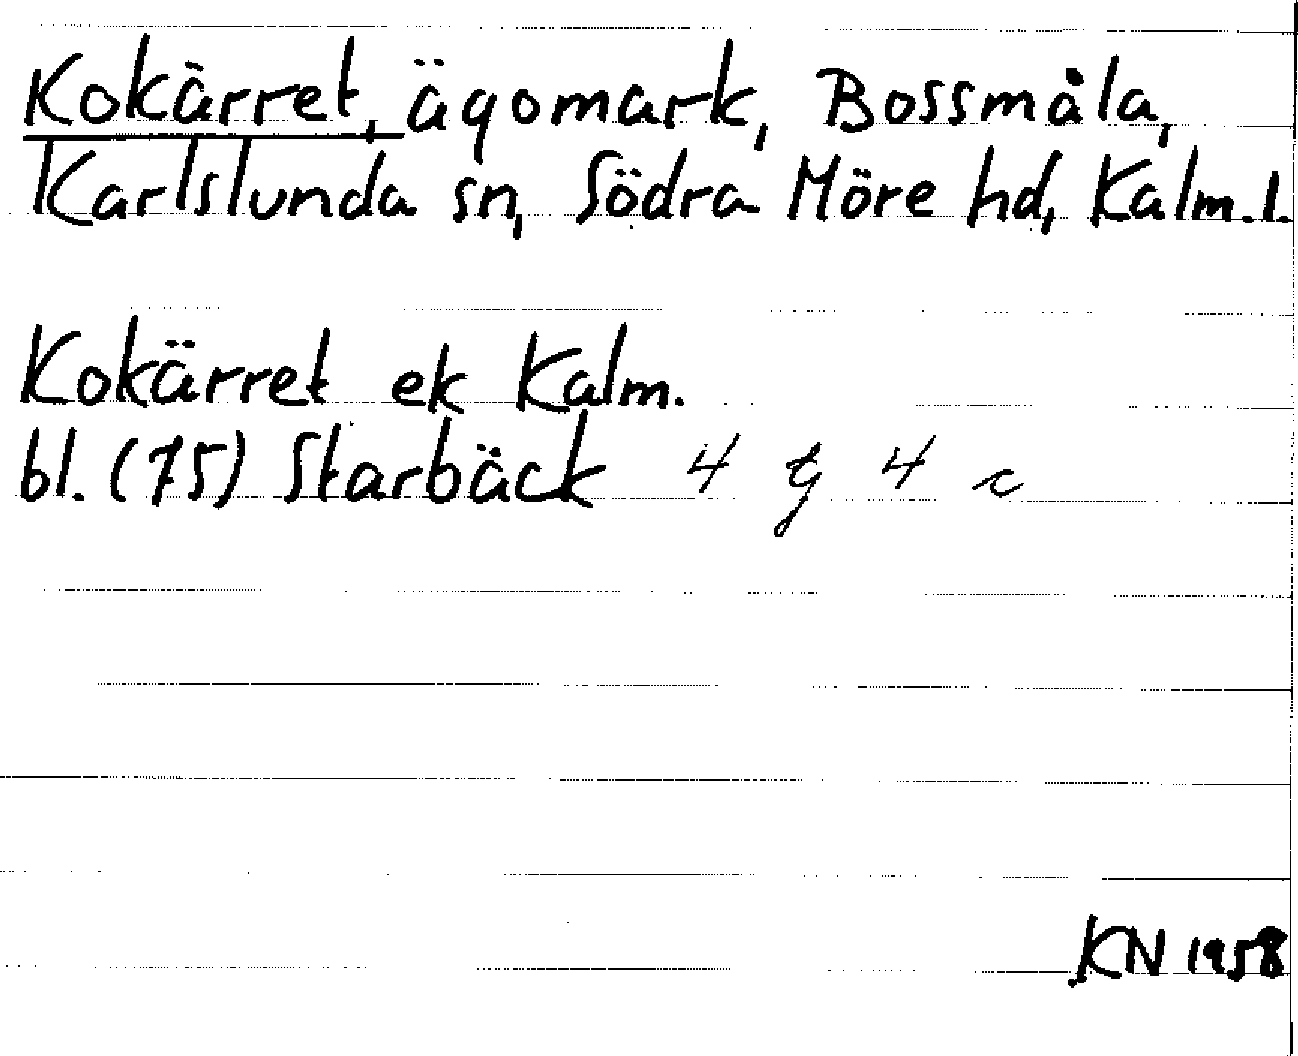 Kokärret, ägomark, Bossmåla,
Karlslunda sn, Södra Möre hd, Kalm. l.
Kokärret ek Kalm.
bl. (75) Starbäck 4 g 4 c
KN 1958